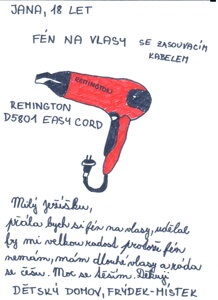 JANA, 18 LET
FÉN NA VLASY SE ZASOUVACÍM
KABELEM
REMINGTON
REMINGTON
D5801 EASY CORD
Milý Ježíšku,
přála bych si fén na vlasy, udělal
by mi velkou radost protože fén
nemám, mám dlouhé vlasy a ráda
se češu. Moc se těším. Děkuji
DĚTSKÝ DOMOV, FRÝDEK-MÍSTEK